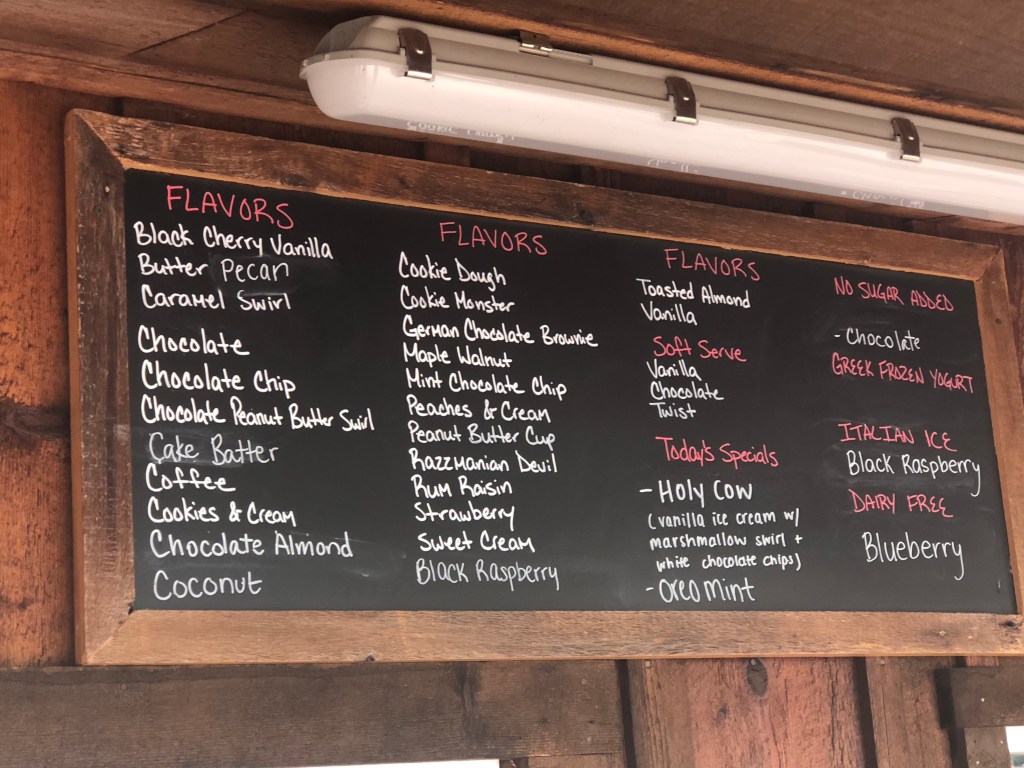 FLAVORS
Black Cherry Vanilla
Butter Pecan
Caramel Swirl
Chocolate
Chocolate Chip
Chocolate Peanut Butter Swirl
Cake Batter
Coffee
Cookies & Cream
Chocolate Almond
Coconut
FLAVORS
Cookie Dough
Cookie Monster
German Chocolate Brownie
Maple Walnut
Mint Chocolate Chip
Peaches & Cream
Peanut Butter Cup
Razzmanian Devil
Rum Raisin
Strawberry
Sweet Cream
Black Raspberry
FLAVORS
Toasted Almond
Vanilla
Soft Serve
Vanilla
Chocolate
Twist
Today's Specials
- Holy Cow
(vanilla ice cream w/
marshmallow swirl +
white chocolate chips)
- Oreo Mint
NO SUGAR ADDED
- Chocolate
GREEK FROZEN YOGURT
ITALIAN ICE
Black Raspberry
DAIRY FREE
Blueberry